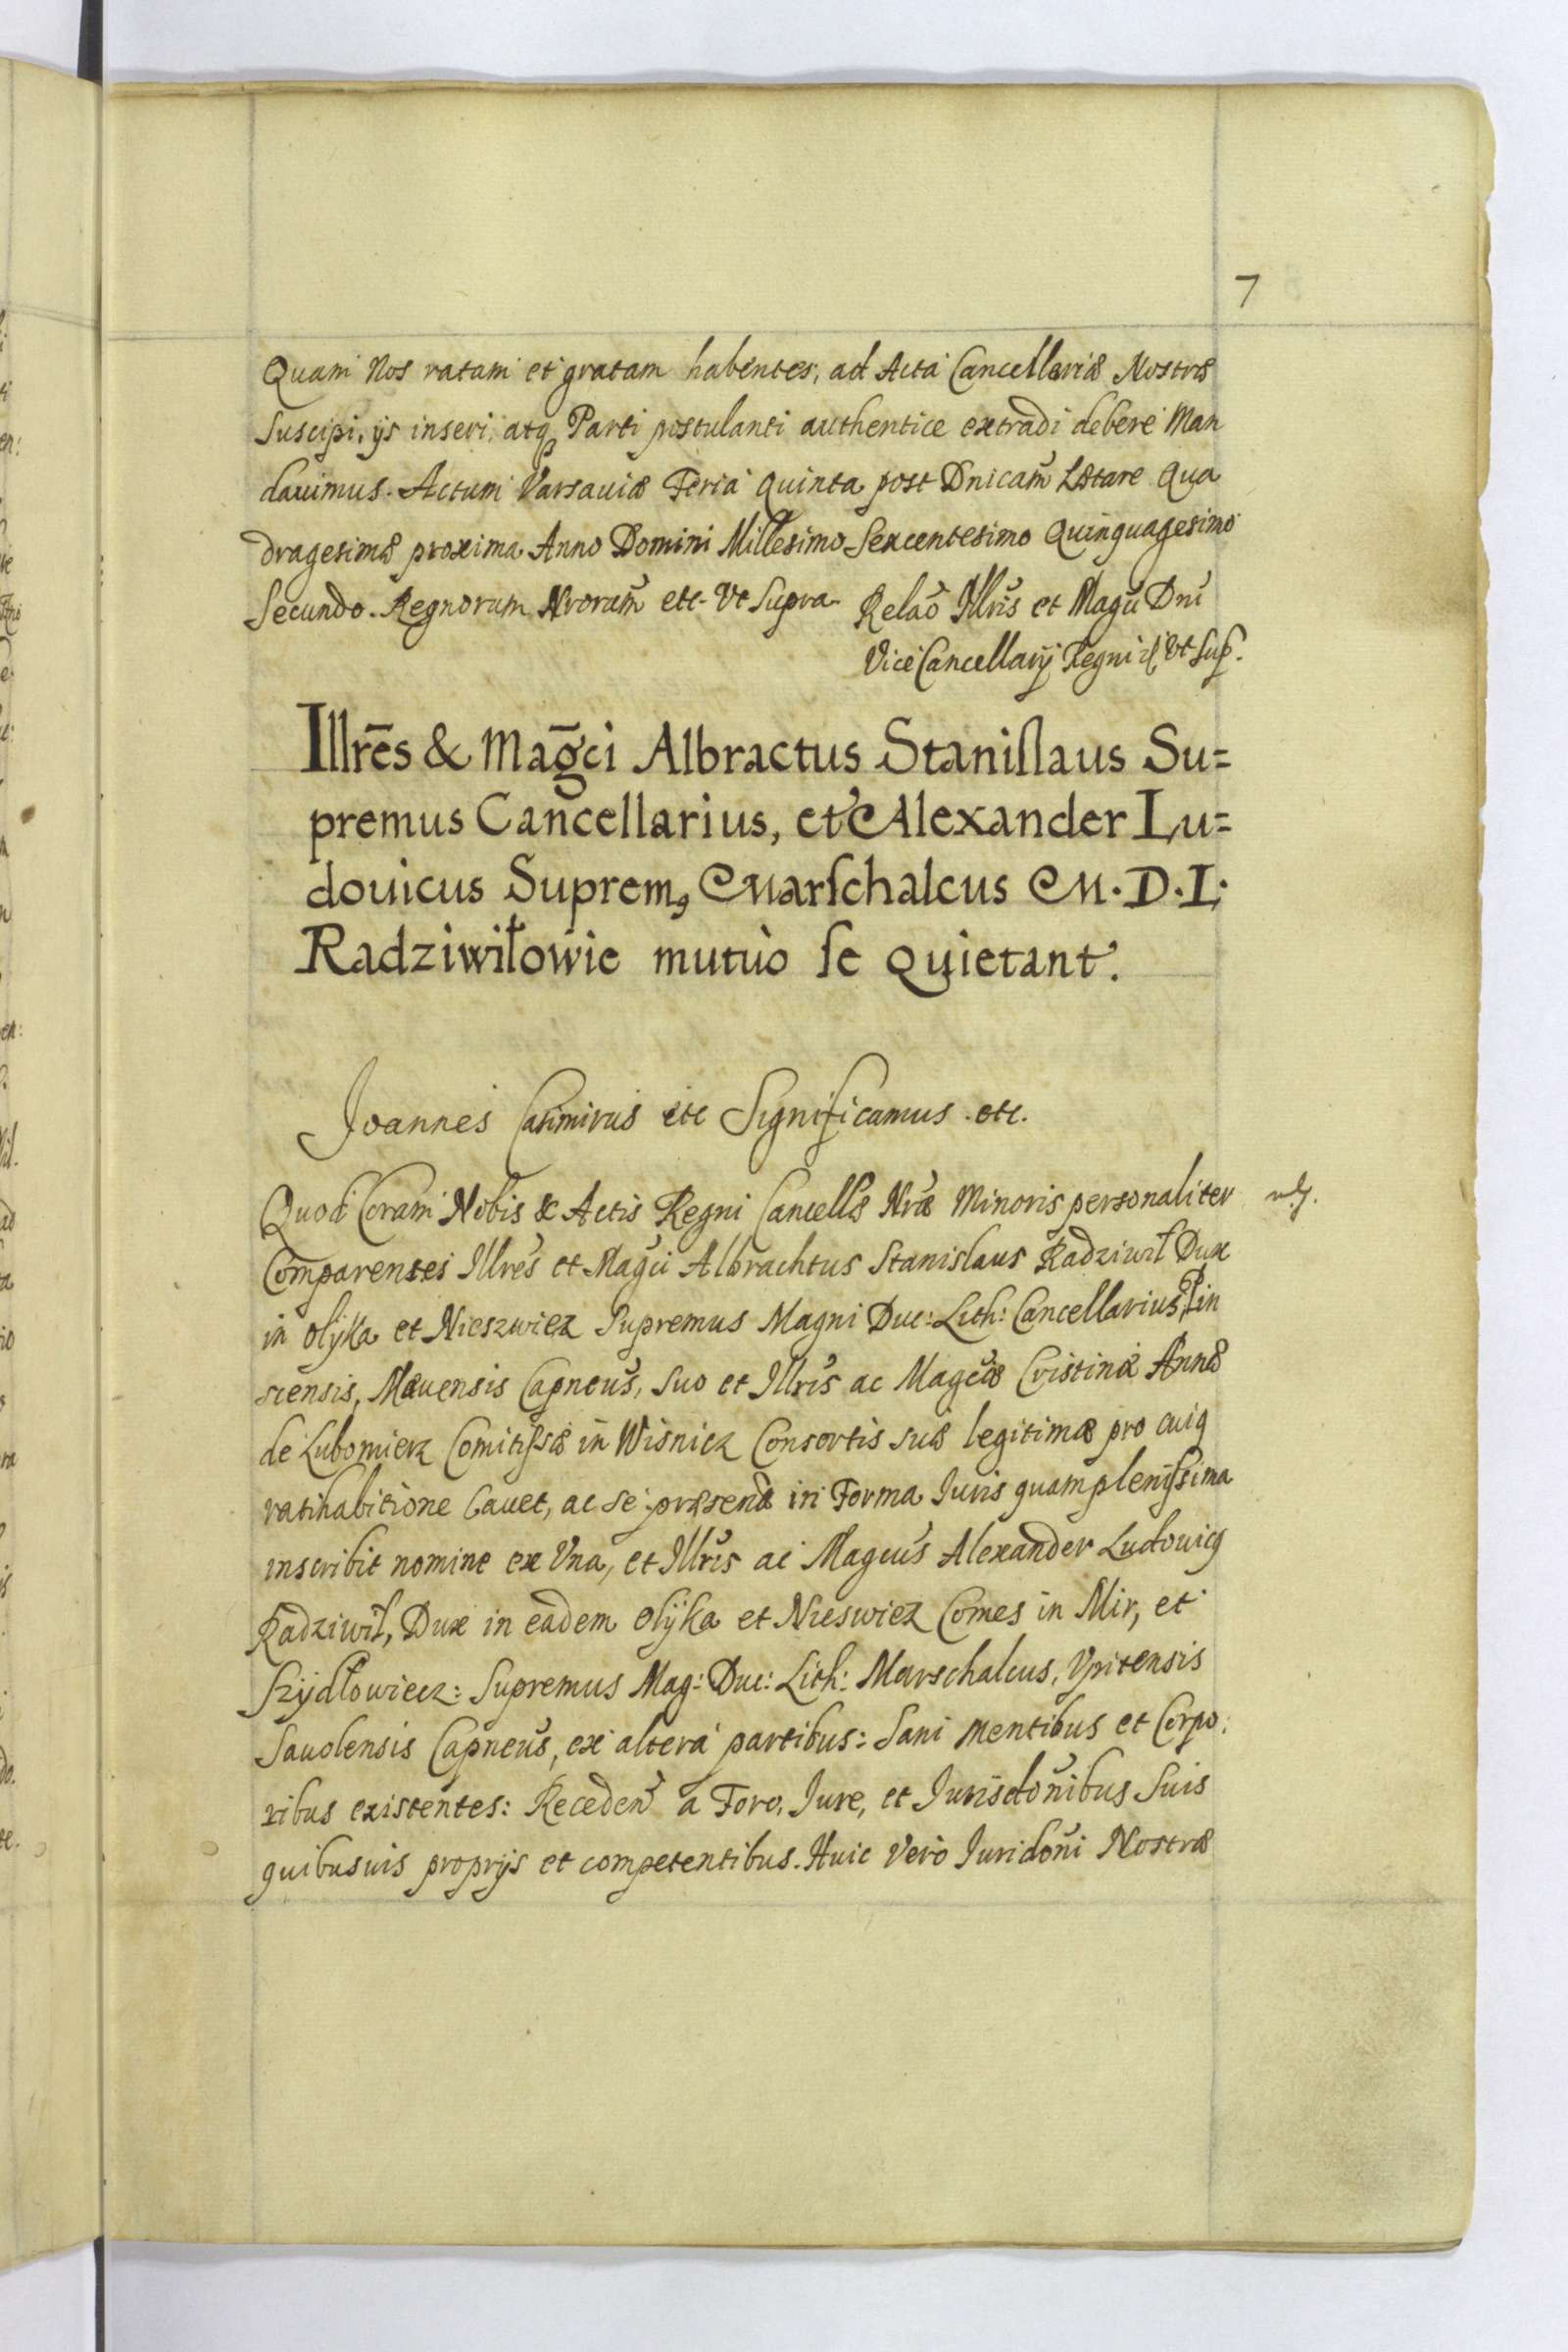 7
Quam Nos ratam et gratam habentes, ad Acta Cancellariæ Nostræ
Suscipi, ijs inseri, atq Parti postulanti authentice extradi debere Man
dauimus. Actum Varsauiæ Feria Quinta post Dnicam Lætare Qua
dragesimæ proxima Anno Domini Millesimo Sexcentesimo Quinquagesimo
Secundo. Regnorum Nrorum etc. Vt Supra. Relao Illris et Magci Dni
Vice Cancellarij Regni Vt Sup.
Illrēs & Māgci Albractus Stanislaus Su=
premus Cancellarius, et Alexander Lu=
douicus Suprem9 Marschalcus M. D. L.
Radziwiłowie mutuò se Quietant.
Joannes Casimirus etc Significamus etc.
Quod Coram Nobis & Actis Regni Cancellæ Nræ Minoris personaliter
Comparentes Illres et Magci Albrachtus Stanislaus Radziwił Dux
in Olÿka et Nieszwiez Supremus Magni Duc: Lith: Cancellarius, Pin
scensis, Mævensis Capneus, Suo et Illris ac Magcæ Cristinæ Annæ
de Lubomierz Comitissæ in Wisnicz Consortis suæ legitimæ pro cuiq
ratihabitione Cauet, ac se præsend in Forma Iuris quamplenissima
inscribit nomine ex Vna, et Illris ac Magcus Alexander Ludouicq
Radziwił, Dux in eadem Olÿka et Nieswiez Comes in Mir, et
Szÿdłowiecz: Supremus Mag: Duc: Lith: Marschalcus, Vpitensis
Sauolensis Capneus, ex altera partibus: Sani Mentibus et Corpo:
ribus existentes: Receden a Foro, Iure, et Jurisdonibus Suis
quibusuis proprijs et competentibus. Huic Vero Juridoni Nostræ